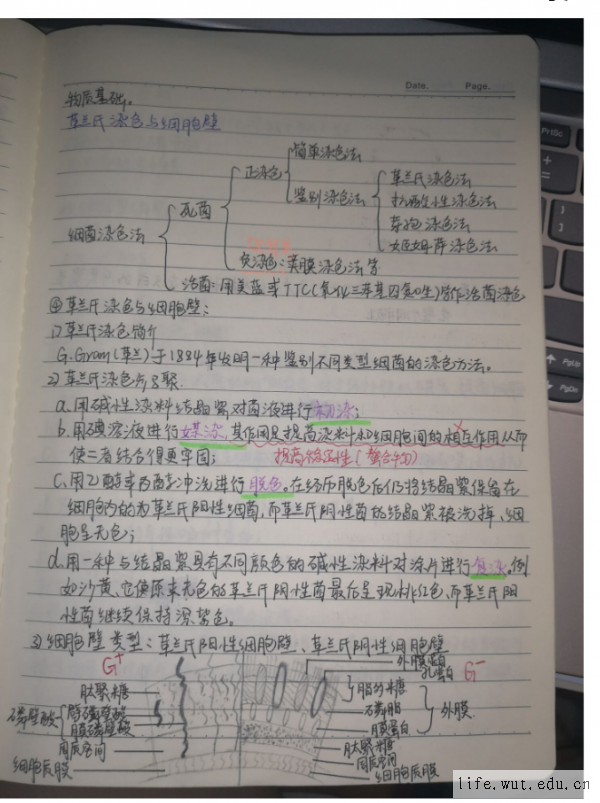 Date. Page.
物质基础。
革兰氏染色与细胞壁
简单染色法
正染色
鉴别染色法
革兰氏染色法
抗酸性染色法
芽孢染色法
姬姆萨染色法
死菌
细菌染色法
负染色：荚膜染色法等
活菌：用美蓝或TTC(氧化三苯基四氮唑)等作活菌染色
④革兰氏染色与细胞壁：
1)革兰氏染色简介
G.Gram(革兰)于1884年发明一种鉴别不同类型细菌的染色方法。
2)革兰氏染色步骤
a.用碱性染料结晶紫对菌液进行初染；
b.用碘溶液进行媒染，其作用是提高染料和细胞间的相互作用从而
使二者结合得更牢固；
提高稳定性(螯合物)
c.用乙醇或丙酮冲洗进行脱色。在经历脱色后仍将结晶紫保留在
细胞内的为革兰氏阳性细菌，而革兰氏阴性菌的结晶紫被洗掉、细
胞呈无色；
d.用一种与结晶紫具有不同颜色的碱性染料对涂片进行复染。例
如沙黄，它使原来无色的革兰氏阴性菌最后呈现桃红色，而革兰氏阳
性菌继续保持深紫色。
3)细胞壁类型：革兰氏阳性细胞壁、革兰氏阴性细胞壁
G⁺
外膜蛋白
孔蛋白
G⁻
肽聚糖
脂多糖
磷壁酸
壁磷壁酸
膜磷壁酸
磷脂
膜蛋白
外膜
周质空间
肽聚糖
周质空间
细胞质膜
细胞质膜
PrtSc
PgUp
PgDn
life.wut.edu.cn